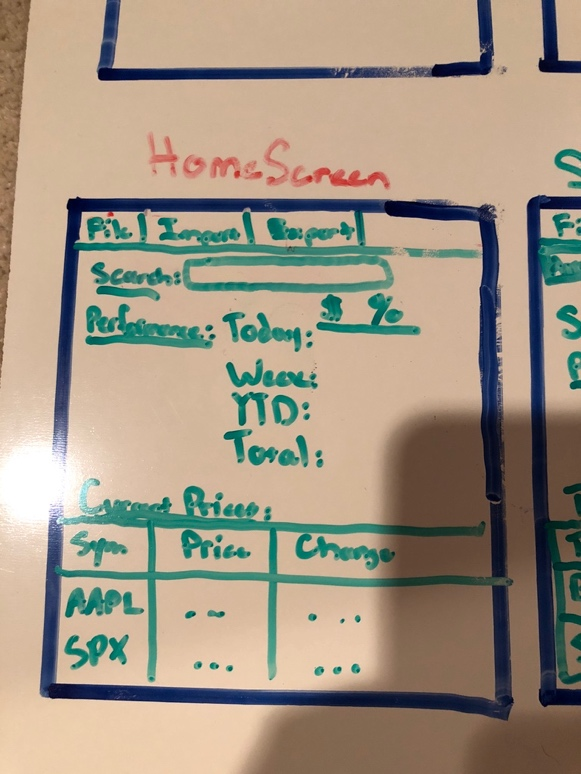 HomeScreen
File | Import | Export |
Search:
Performance: Today: $ %
Week:
YTD:
Total:
Current Prices:
Sym Price Change
AAPL ... ...
SPX ... ...